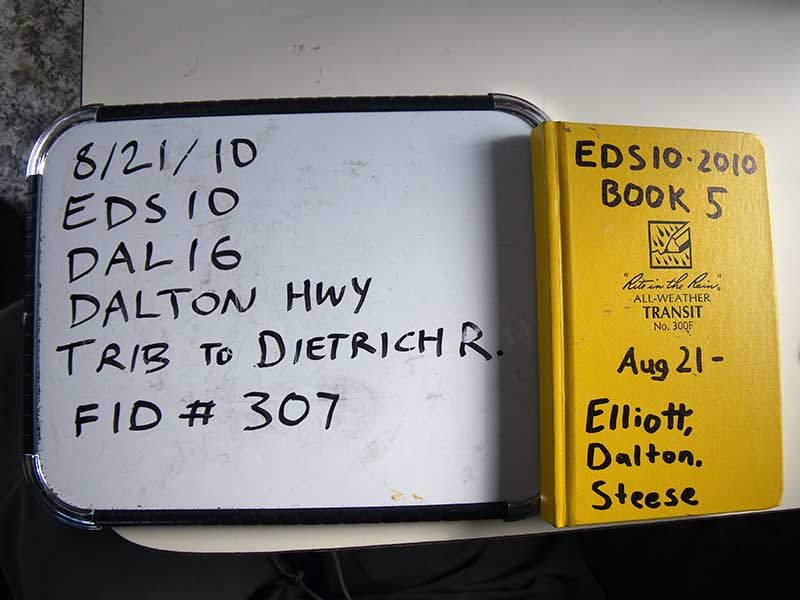 8/21/10
EDS10
DAL16
DALTON HWY
TRIB TO DIETRICH R.
FID # 307
EDS10·2010
BOOK 5
"Rite in the Rain"
ALL-WEATHER
TRANSIT
No. 300F
Aug 21-
Elliott,
Dalton.
Steese